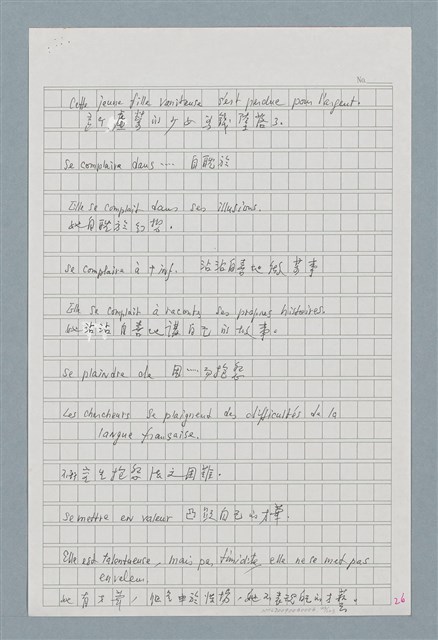 No.
Cette jeune fille vaniteuse s'est perdue pour l'argent.
虛榮的少女 錢墮落了。
se complaire dans ⋯ 自酖於
Elle se complait dans ses illusions.
她自酖於幻想。
se complaire à + inf. 沾沾自喜地做某事
Elle se complait à raconter ses propres histoires.
她沾沾自喜地講自己的故事。
se plaindre de 因⋯而抱怨
Les chercheurs se plaignent des difficultés de la
langue française.
研究生抱怨法文困難。
se mettre en valeur 自己的才華。
Elle est talentueuse, mais par timidité, elle ne se met pas
en valeur.
她有才華,但 由於性格,她不表現自己的才藝
26